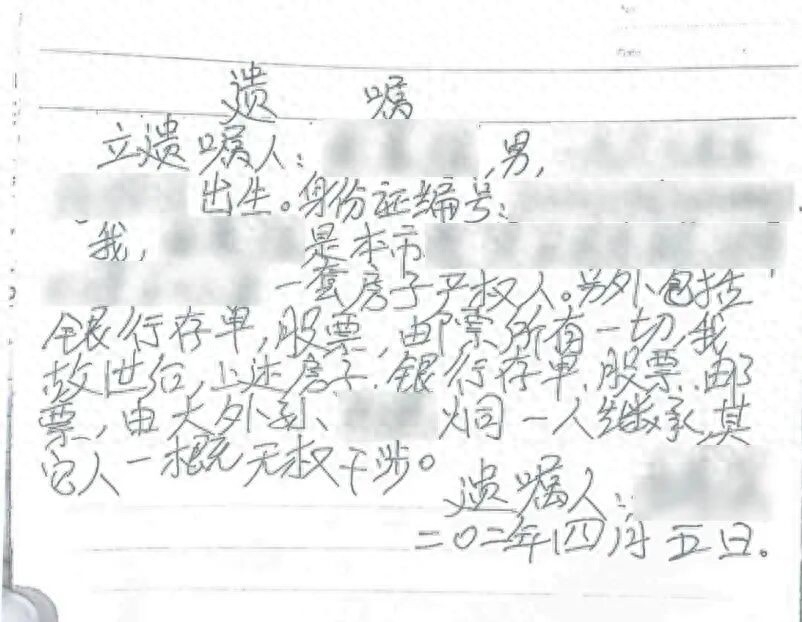 遗 嘱
立遗嘱人: ,男,
出生。身份证编号:
我, 是本市
一套房子产权人。另外包括
银行存单,股票,邮票所有一切,我
故世后,上述房子.银行存单.股票.邮
票,由大外孙 炯一人继承,其
它人一概无权干涉。
遗嘱人:
二〇二年四月五日。